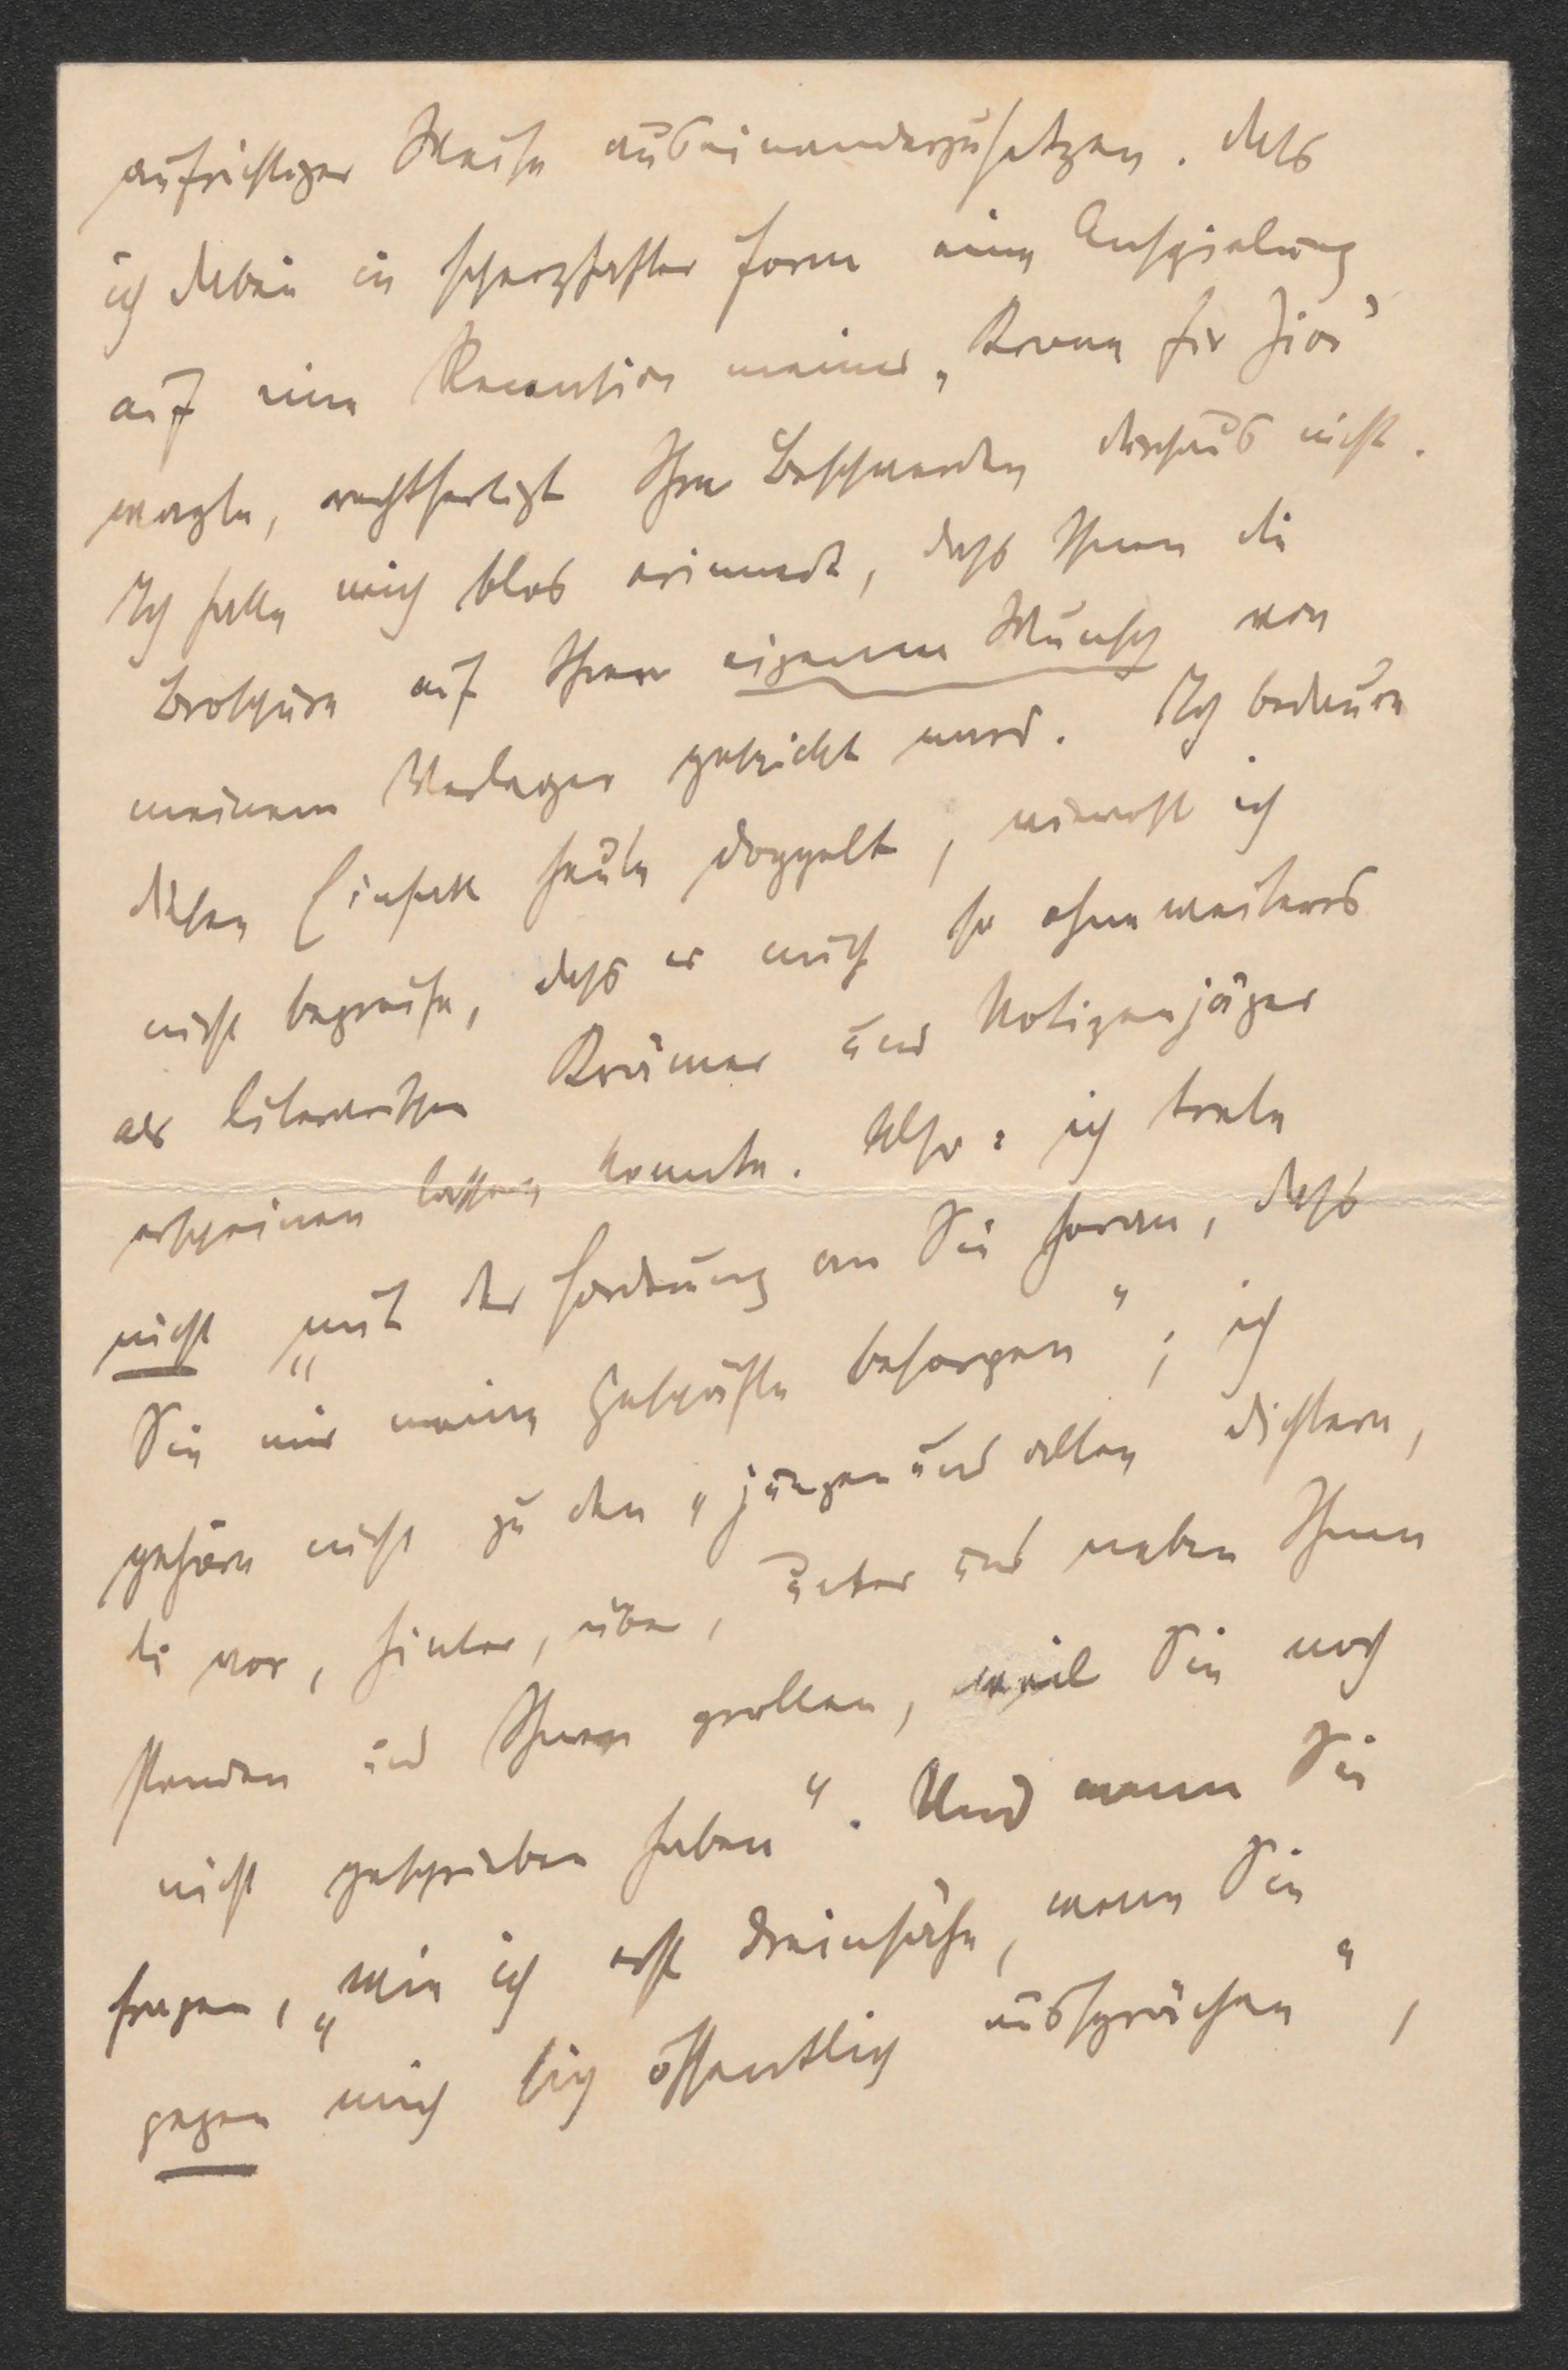 aufrichtiger Weise auseinanderzusetzen. Dass
ich dabei in scherzhafter Form eine Anspielung
auf eine Recension meiner „Krone für Zion“
wagte, rechtfertigt Ihre Beschwerden durchaus nicht.
Ich hatte mich blos erinnert, dass Ihnen die
Broschüre auf Ihren eigenen Wunsch von
meinem Verleger geschickt ward. Ich bedaure
diesen Einfall heute doppelt, wiewohl ich
nicht begreife, dass er mich so ohneweiteres
als literarischen Krämer und Notizenjäger
erscheinen lassen konnte. Also: ich trete
nicht „mit der Forderung an Sie heran, dass
Sie mir meine Geschäfte besorgen“; ich
gehöre nicht zu den „jungen und alten Dichtern,
die vor, hinter, über, unter und neben Ihnen
standen und Ihnen grollen, weil Sie noch
nicht geschrieben haben“. Und wenn Sie
fragen, „wie ich erst dreinsähe, wenn Sie
gegen mich sich öffentlich aussprächen“,